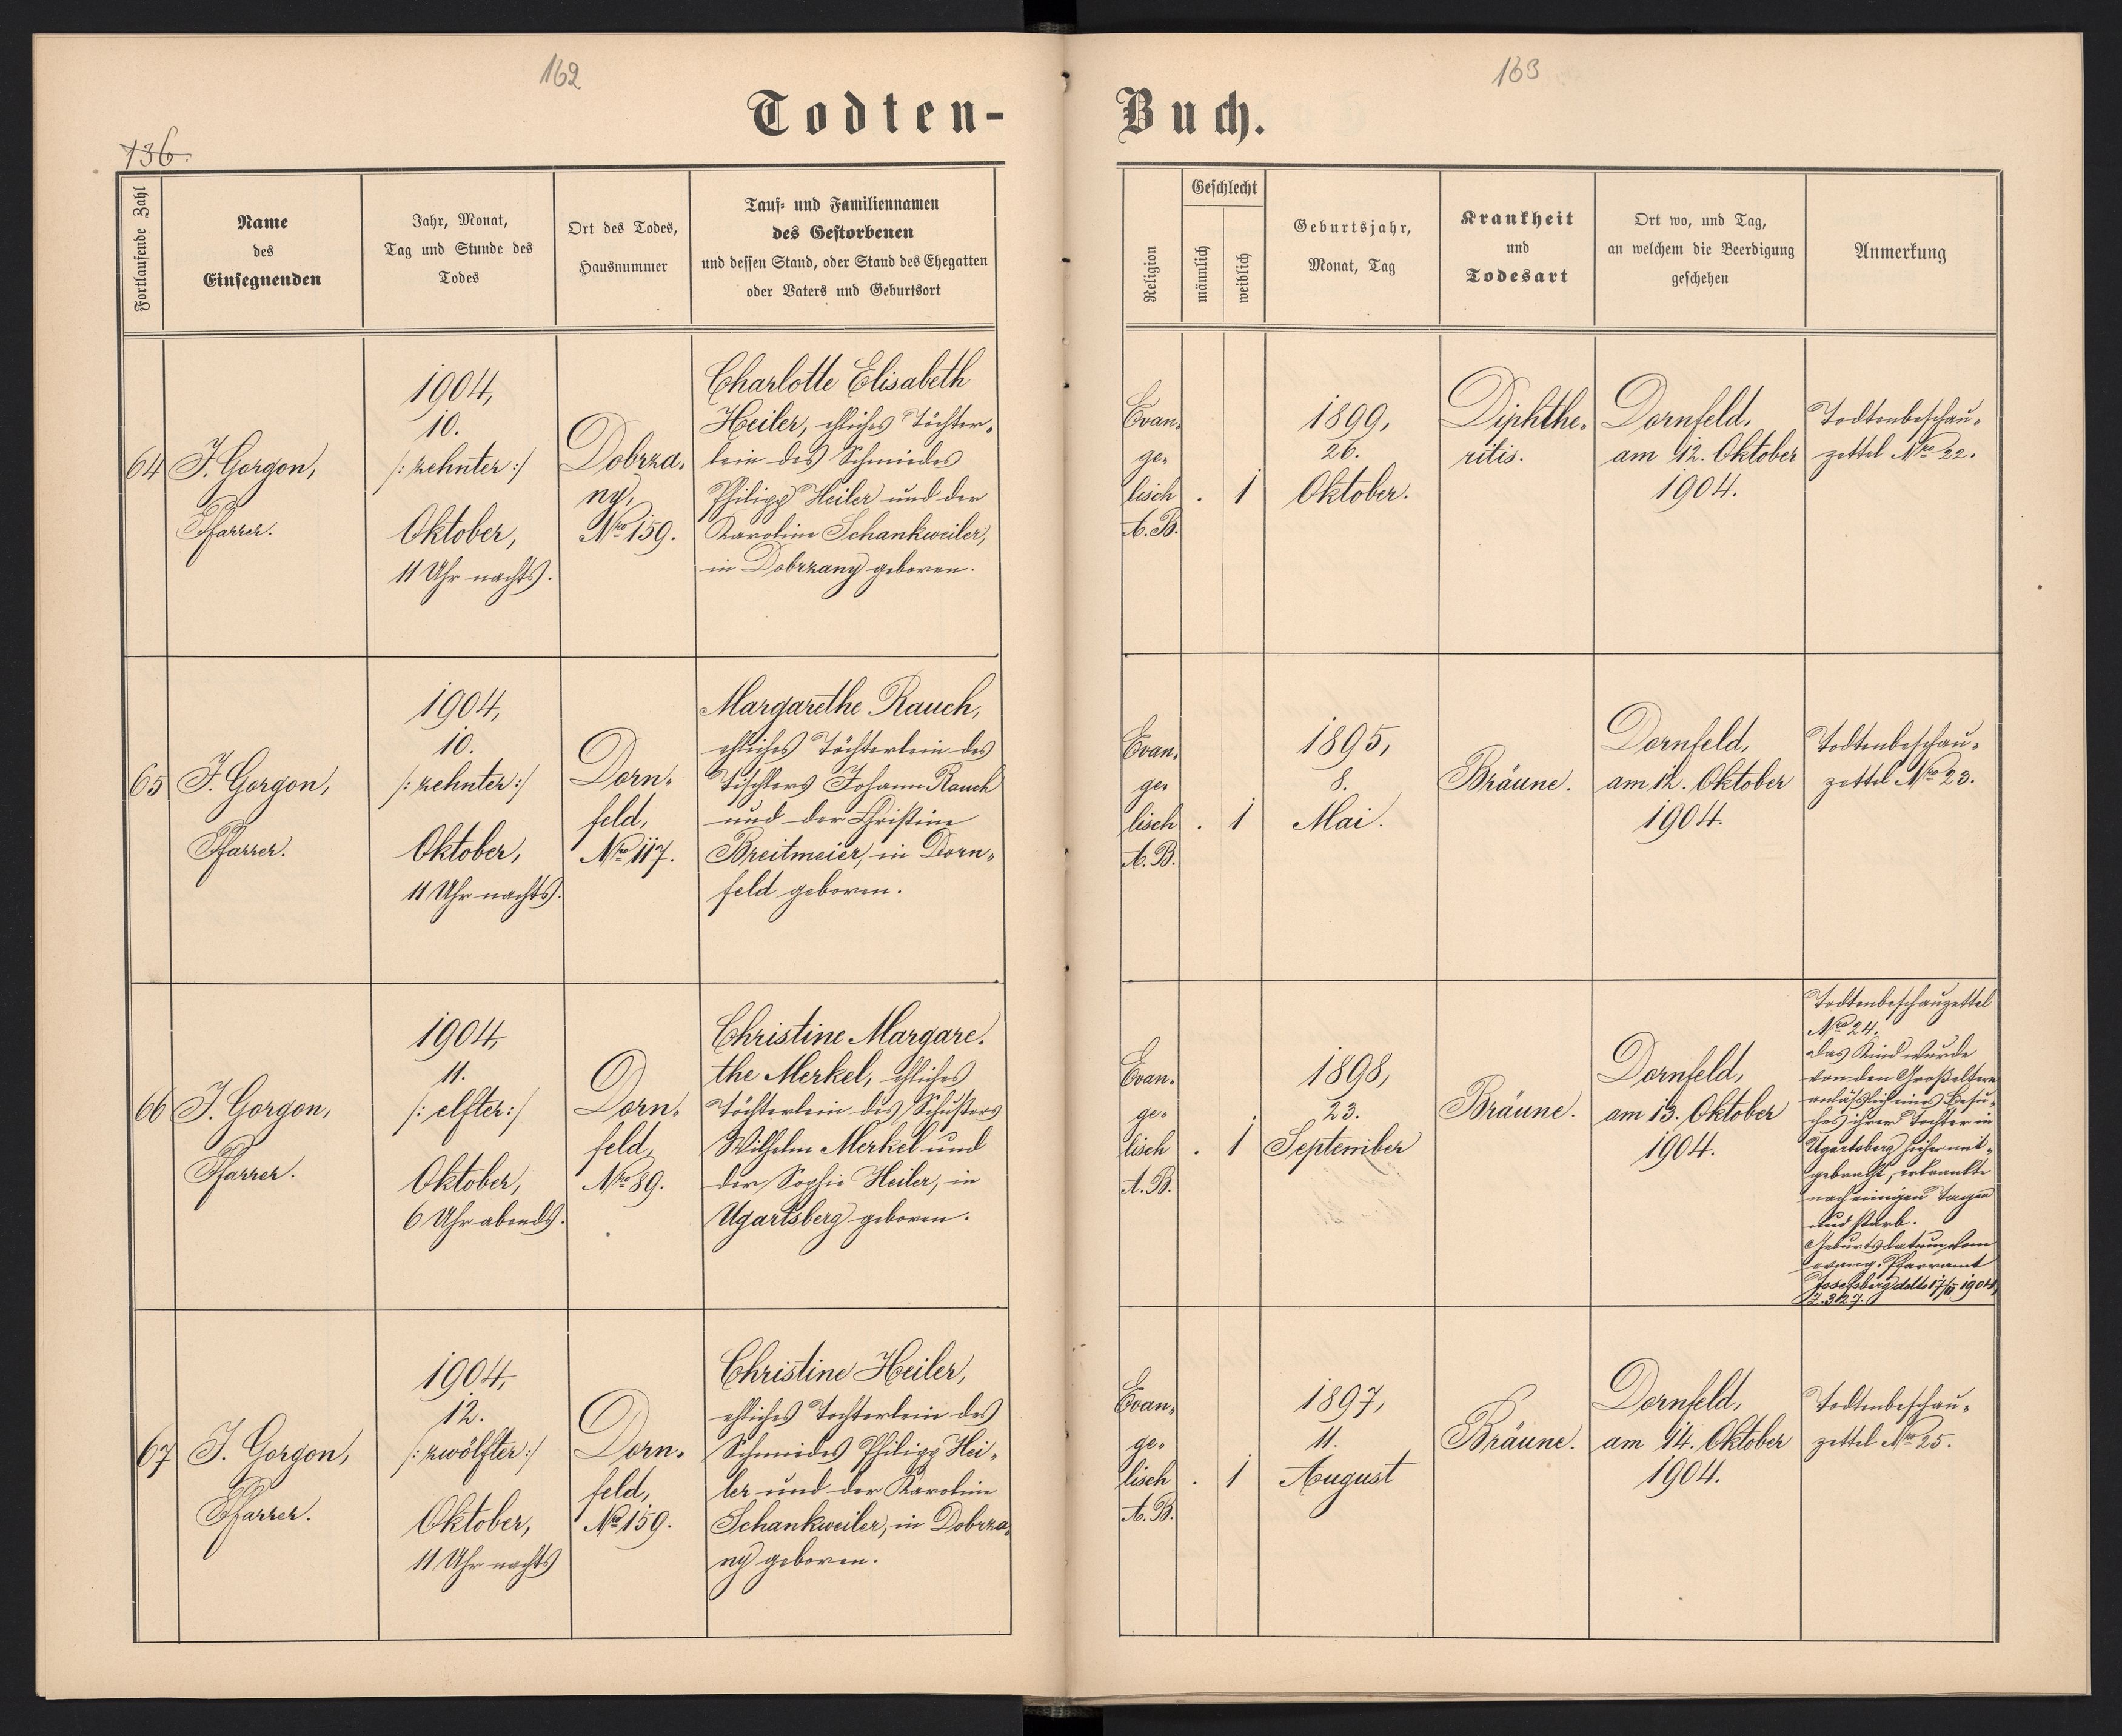 162
163
136.
Todten-
Buch.
Fortlaufende Zahl
Name
des
Einsegnenden
Jahr, Monat,
Tag und Stunde des
Todes
Ort des Todes,
Hausnummer
Tauf- und Familiennamen
des Gestorbenen
und dessen Stand, oder Stand des Ehegatten
oder Vaters und Geburtsort
Religion
Geschlecht
männlich
weiblich
Geburtsjahr,
Monat, Tag
Krankheit
und
Todesart
Ort wo, und Tag,
an welchem die Beerdigung
geschehen
Anmerkung
64
J. Gorgon,
Pfarrer.
1904,
10.
/: zehnter :/
Oktober,
11 Uhr nachts.
Dobrza-
ny,
Nro 159.
Charlotte Elisabeth
Heiler, ehliches Töchter-
lein des Schmiedes
Philipp Heiler und der
Karoline Schankweiler,
in Dobrzany geboren.
Evan-
ge-
lisch
A. B.
.
1
1899,
26.
Oktober.
Diphthe-
ritis.
Dornfeld,
am 12. Oktober
1904.
Todtenbeschau-
zettel Nro 22.
65
J. Gorgon,
Pfarrer.
1904,
10.
/: zehnter :/
Oktober,
11 Uhr nachts.
Dorn-
feld,
Nro 117.
Margarethe Rauch,
ehliches Töchterlein des
Tischlers Johann Rauch
und der Christine
Breitmeier, in Dorn-
feld geboren.
Evan-
ge-
lisch
A. B.
.
1
1895,
8.
Mai.
Bräune.
Dornfeld,
am 12. Oktober
1904.
Todtenbeschau-
zettel Nro 23.
66
J. Gorgon,
Pfarrer.
1904,
11.
/: elfter :/
Oktober,
6 Uhr abends.
Dorn-
feld,
Nro 89.
Christine Margare-
the Merkel, ehliches
Töchterlein des Schusters
Wilhelm Merkel und
der Sophie Heiler, in
Ugartsberg geboren.
Evan-
ge-
lisch
A. B.
.
1
1898,
23.
September
Bräune.
Dornfeld,
am 13. Oktober
1904.
Todtenbeschauzettel
Nro 24.
Das Kind wurde
von den Großeltern
anläßlich eines Besu-
ches ihrer Tochter in
Ugartsberg hieher mit-
gebracht, erkrankte
nach einigen Tagen
und starb.
Geburtsdatum vom
evang. Pfarramt
Josefsberg ddto 17/11 1904,
Z. 327.
67
J. Gorgon,
Pfarrer.
1904,
12.
/: zwölfter :/
Oktober,
11 Uhr nachts
Dorn-
feld,
Nro 159.
Christine Heiler,
ehliches Tochterlein des
Schmiedes Philipp Hei-
ler und der Karoline
Schankweiler, in Dobrza-
ny geboren.
Evan-
ge-
lisch
A. B.
.
1
1897,
11.
August
Bräune.
Dornfeld,
am 14. Oktober
1904.
Todtenbeschau-
zettel Nro 25.